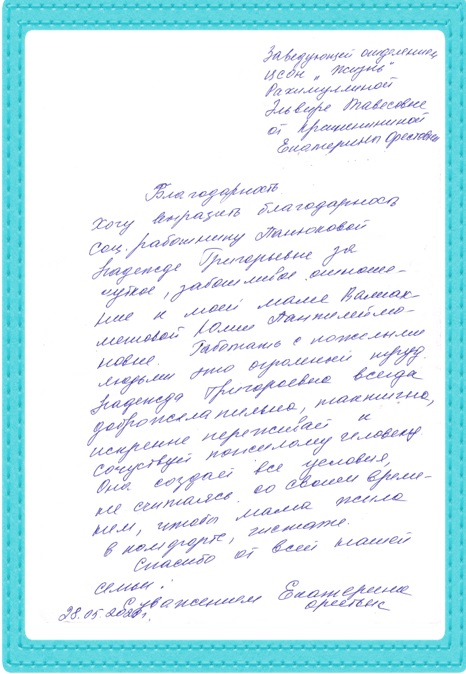 Заведующей отделением
ЦСОН „Жизнь"
Рахимуллиной
Эльвире Тавесовне
от Крашенининой
Екатерины Орестовны
Благодарность
Хочу выразить благодарность
соц. работнику
Надежде Григорьевне за
чуткое, заботливое отноше-
ние к моей маме Валиах-
метовой Юлии Пантелеймо-
новне. Работать с пожилыми
людьми это огромный труд.
Надежда Григорьевна всегда
доброжелательна, тактична,
искренне переживает и
сочувствует пожилому человеку
Она создает все условия,
не считаясь со своим време-
нем, чтобы мама жила
в комфорте, чистоте.
Спасибо от всей нашей
семьи!
С уважением Екатерина
28.05. г. Орестовна